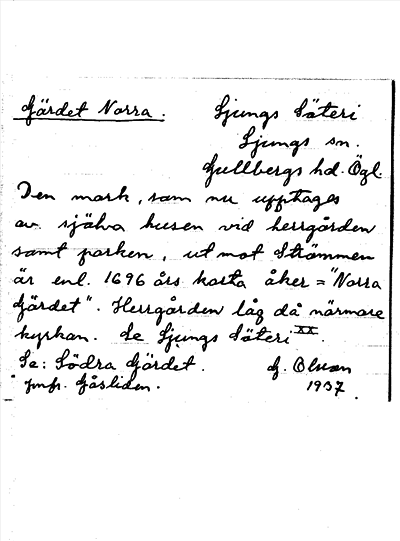 Gärdet Norra. Ljungs Säteri
Ljungs sn.
Gullbergs hd. Ögl.
Den mark, som nu upptages
av själva husen vid herrgården
samt parken, ut mot Strömmen
är enl. 1696 års karta åker = "Norra
Gärdet". Herrgården låg då närmare
kyrkan. Se Ljungs Säteri XX.
Se: Södra Gärdet. G. Olsson
Jmfr. Gåsliden. 1937.